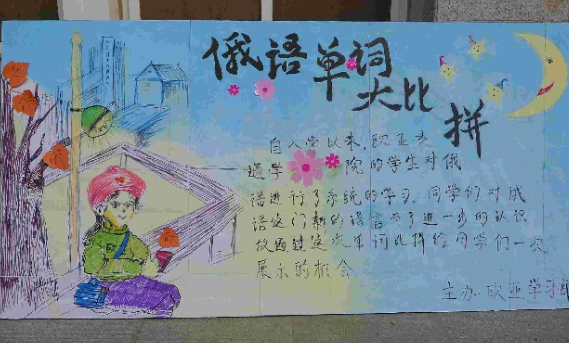 俄语单词
大比
拼
自入学以来,欧亚交
通学院的学生对俄
语进行了系统的学习,同学们对俄
语这门新的语言有了进一步的认识
故通过这次单词比拼给同学们一次
展示的机会
主办:欧亚学习部